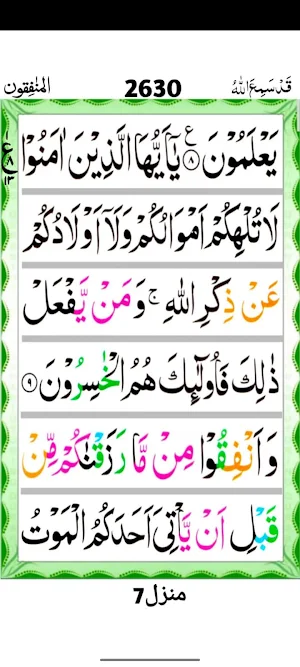 قَدۡ سَمِعَ اللهُ 2630 المنٰفقون
يَعۡلَمُوۡنَ ۸ ع يٰۤاَيُّهَا الَّذِيۡنَ اٰمَنُوۡا ع ۸ ۱۳
لَا تُلۡهِكُمۡ اَمۡوَالُكُمۡ وَلَاۤ اَوۡلَادُكُمۡ
عَنۡ ذِكۡرِ اللّٰهِ‌ۚ وَمَنۡ يَّفۡعَلۡ
ذٰلِكَ فَاُولٰٓئِكَ هُمُ الۡخٰسِرُوۡنَ ۹
وَاَنۡفِقُوۡا مِنۡ مَّا رَزَقۡنٰكُمۡ مِّنۡ
قَبۡلِ اَنۡ يَّاۡتِىَ اَحَدَكُمُ الۡمَوۡتُ
منزل7